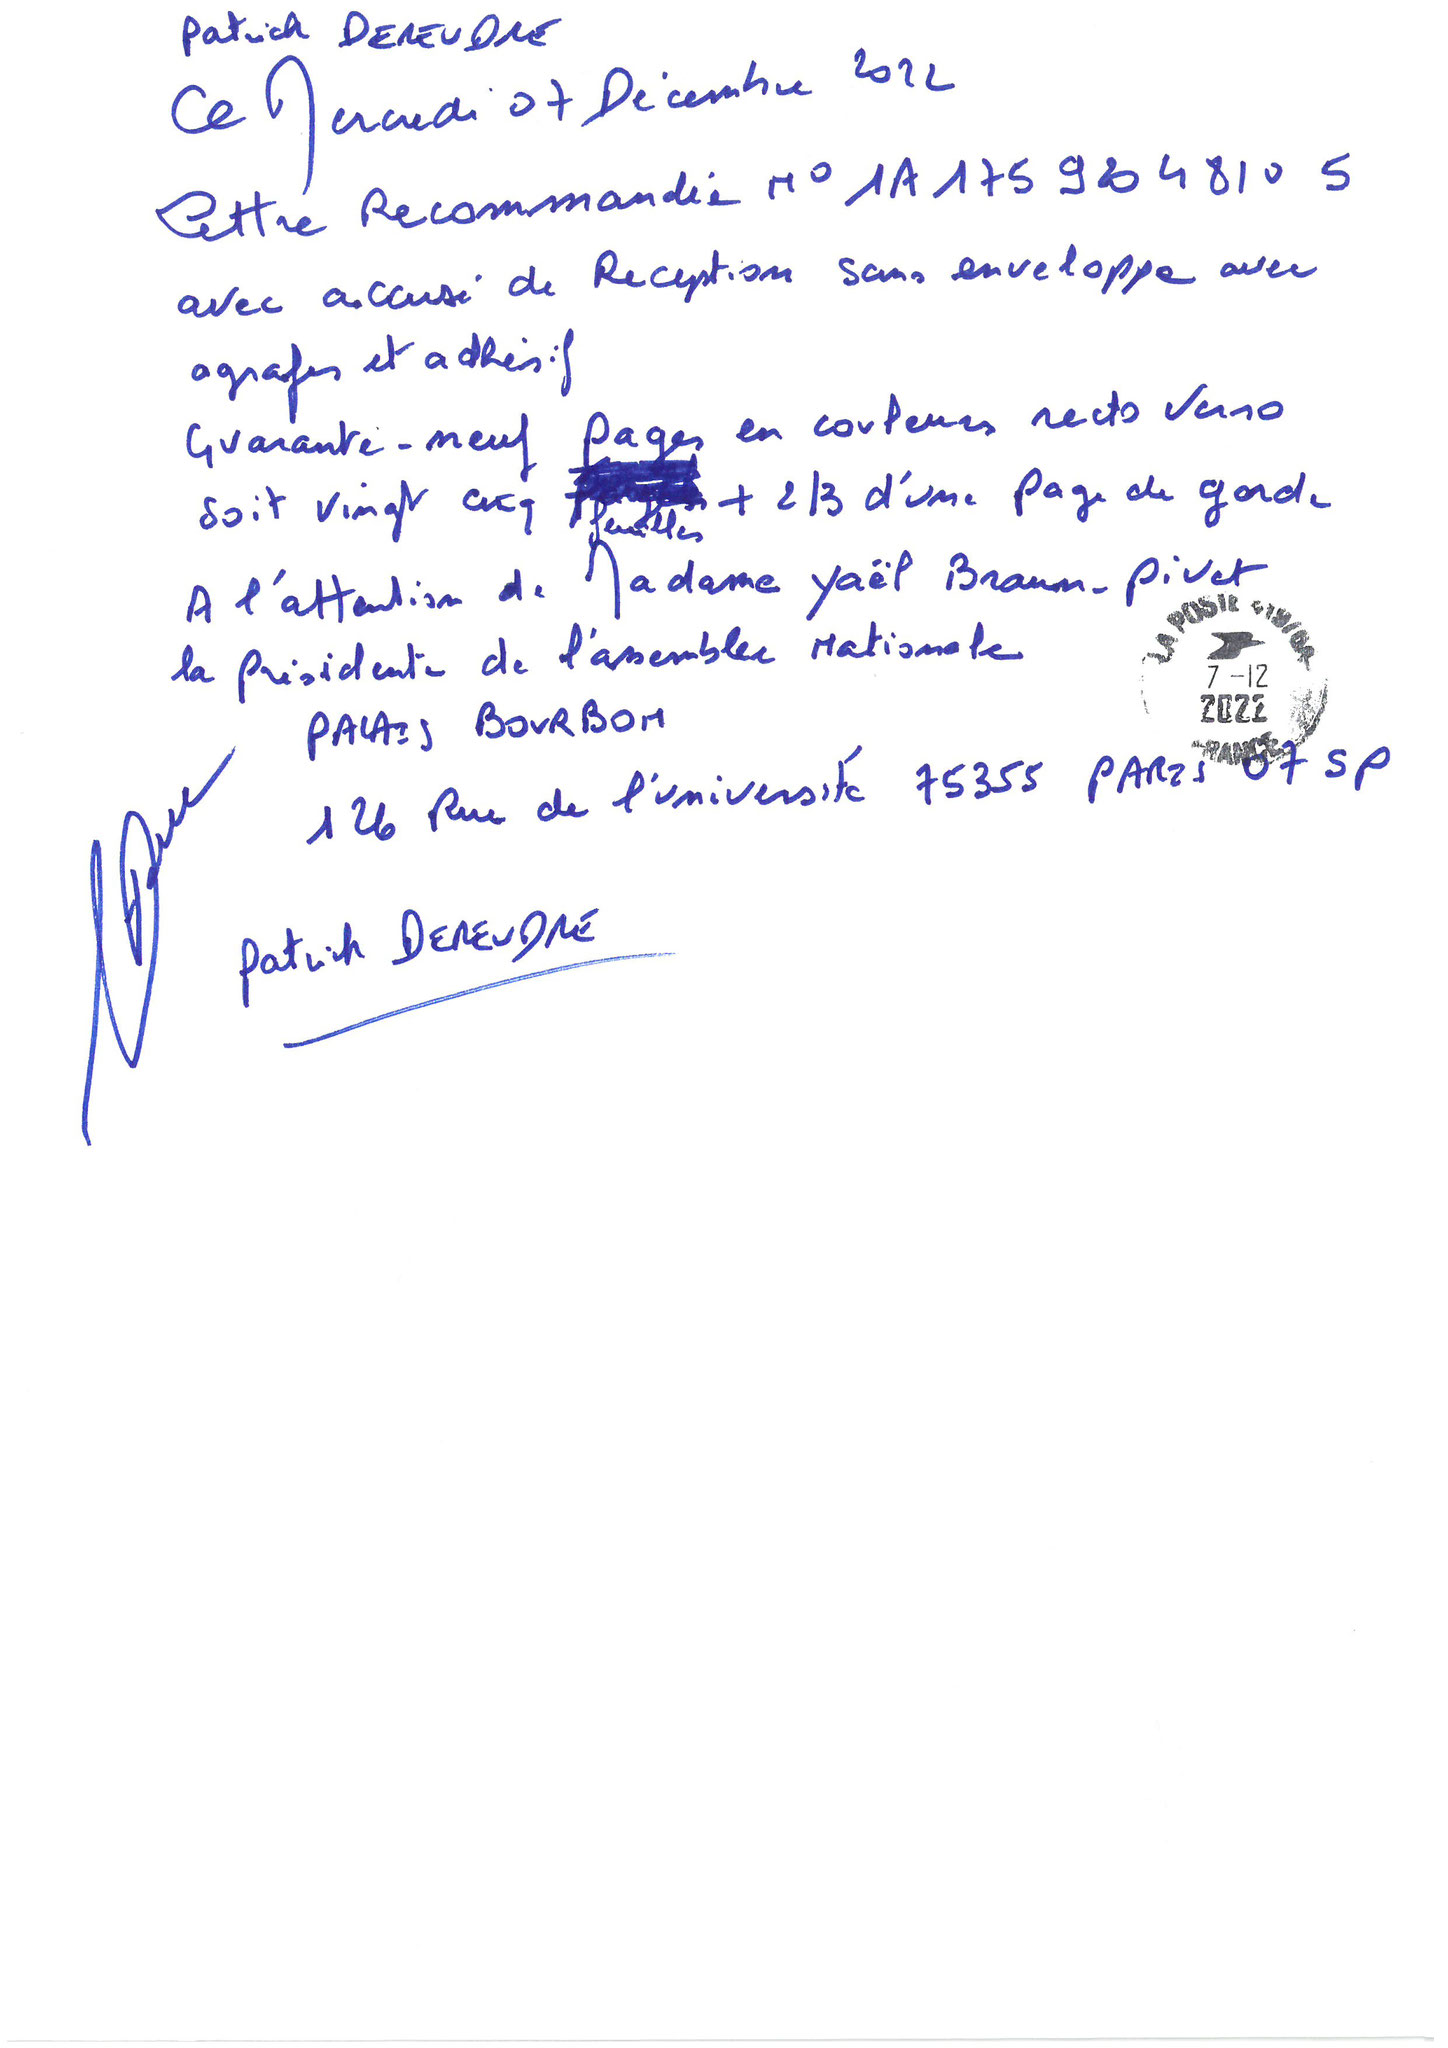 Patrick DEREUDRE
Ce Mercredi 07 Décembre 2022
Lettre Recommandée N° 1A 175 920 4810 5
avec accusé de Reception sans enveloppe avec
agrafes et adhésif
Quarante-neuf pages en couleurs recto verso
soit vingt cinq feuilles + 2/3 d'une page de garde
A l'attention de Madame Yaël Braun-Pivet
la présidente de l'assemblée Nationale
PALAIS BOURBON
126 Rue de l'université 75355 PARIS 07 SP
LA POSTE
7-12
2022
FRANCE
Patrick DEREUDRE